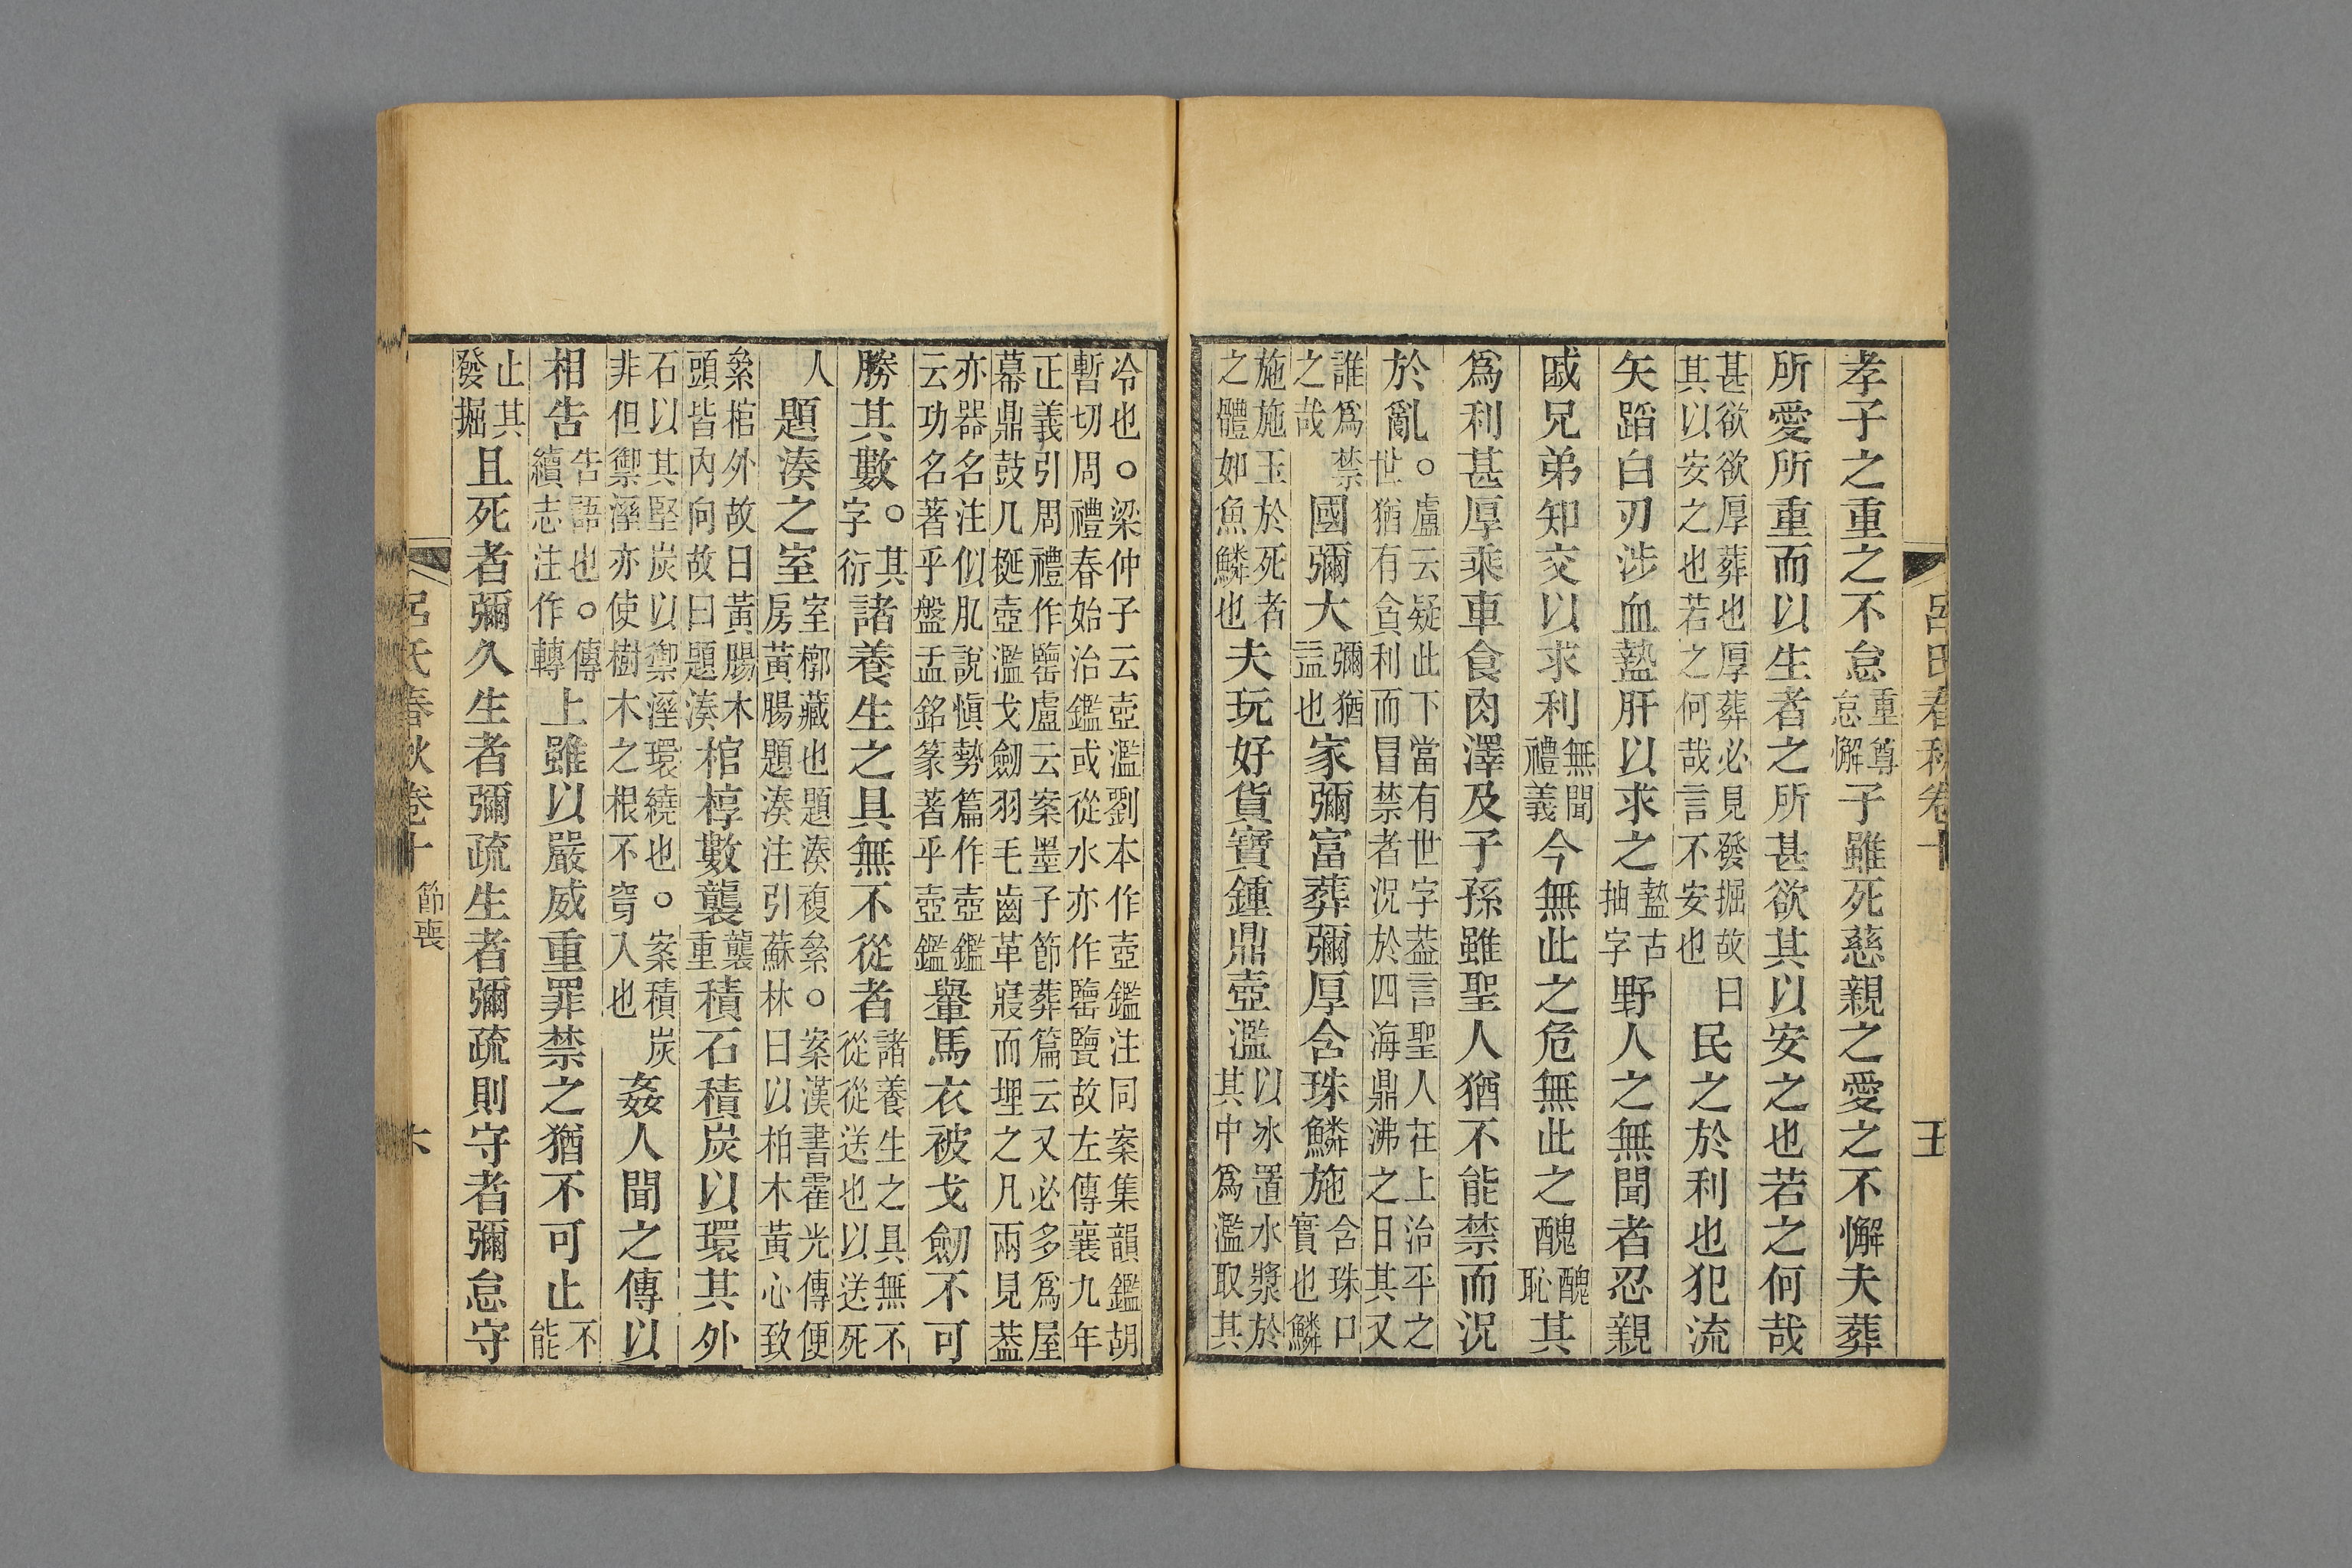 呂氏春秋卷十
五
孝子之重之不怠重尊怠懈子雖死慈親之愛之不懈夫葬
所愛所重而以生者之所甚欲其以安之也若之何哉
甚欲欲厚葬也厚葬必見發掘故曰其以安之也若之何哉言不安也民之於利也犯流
矢蹈白刃涉血盩肝以求之盩古抽字野人之無聞者忍親
戚兄弟知交以求利無聞禮義今無此之危無此之醜醜恥其
爲利甚厚乘車食肉澤及子孫雖聖人猶不能禁而況
於亂○盧云疑此下當有世字葢言聖人在上治平之世猶有貪利而冒禁者況於四海鼎沸之日其又
誰爲禁之哉國彌大彌猶益也家彌富葬彌厚含珠鱗施含珠口實也鱗
施施玉於死者之體如魚鱗也夫玩好貨寶鍾鼎壺濫以冰置水漿於其中爲濫取其
冷也○梁仲子云壺濫劉本作壺鑑注同案集韻鑑胡暫切周禮春始治鑑或從水亦作䥵甖故左傳襄九年
正義引周禮作䥵盧云案墨子節葬篇云又必多爲屋幕鼎鼓几梴壺濫戈劒羽毛齒革寢而埋之凡兩見葢
亦器名注似肊說愼勢篇作壺鑑云功名著乎盤盂銘篆著乎壺鑑轝馬衣被戈劒不可
勝其數○其字衍諸養生之具無不從者諸養生之具無不從從送也以送死
人題湊之室室槨藏也題湊複絫○案漢書霍光傳便房黃腸題湊注引蘇林曰以柏木黃心致
絫棺外故曰黃腸木頭皆內向故曰題湊棺椁數襲襲重積石積炭以環其外
石以其堅炭以禦溼環繞也○案積炭非但禦溼亦使樹木之根不穹入也姦人聞之傳以
相告告語也○傳續志注作轉上雖以嚴威重罪禁之猶不可止不能
止其發掘且死者彌久生者彌疏生者彌疏則守者彌怠守
呂氏春秋卷十
節喪
六